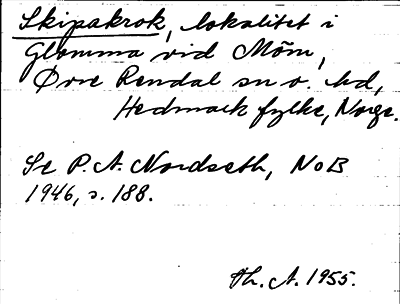 Skipakrok, lokalitet i
Glomma vid Môm,
Øvre Rendal sn o. hd,
Hedmark fylke, Norge.
Se P. A. Nordseth, NoB
1946, s. 188.
Th. A. 1955.